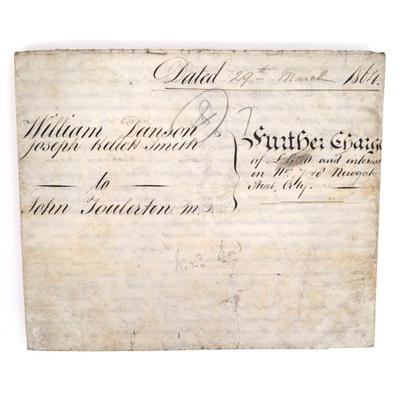 Dated 29th March 1864.
William Danson &
Joseph Kellett Smith
to
John Foulerton M.D.
Further Charge
of £ and interest
in No. 7 & 8 Newgate
Street, City.